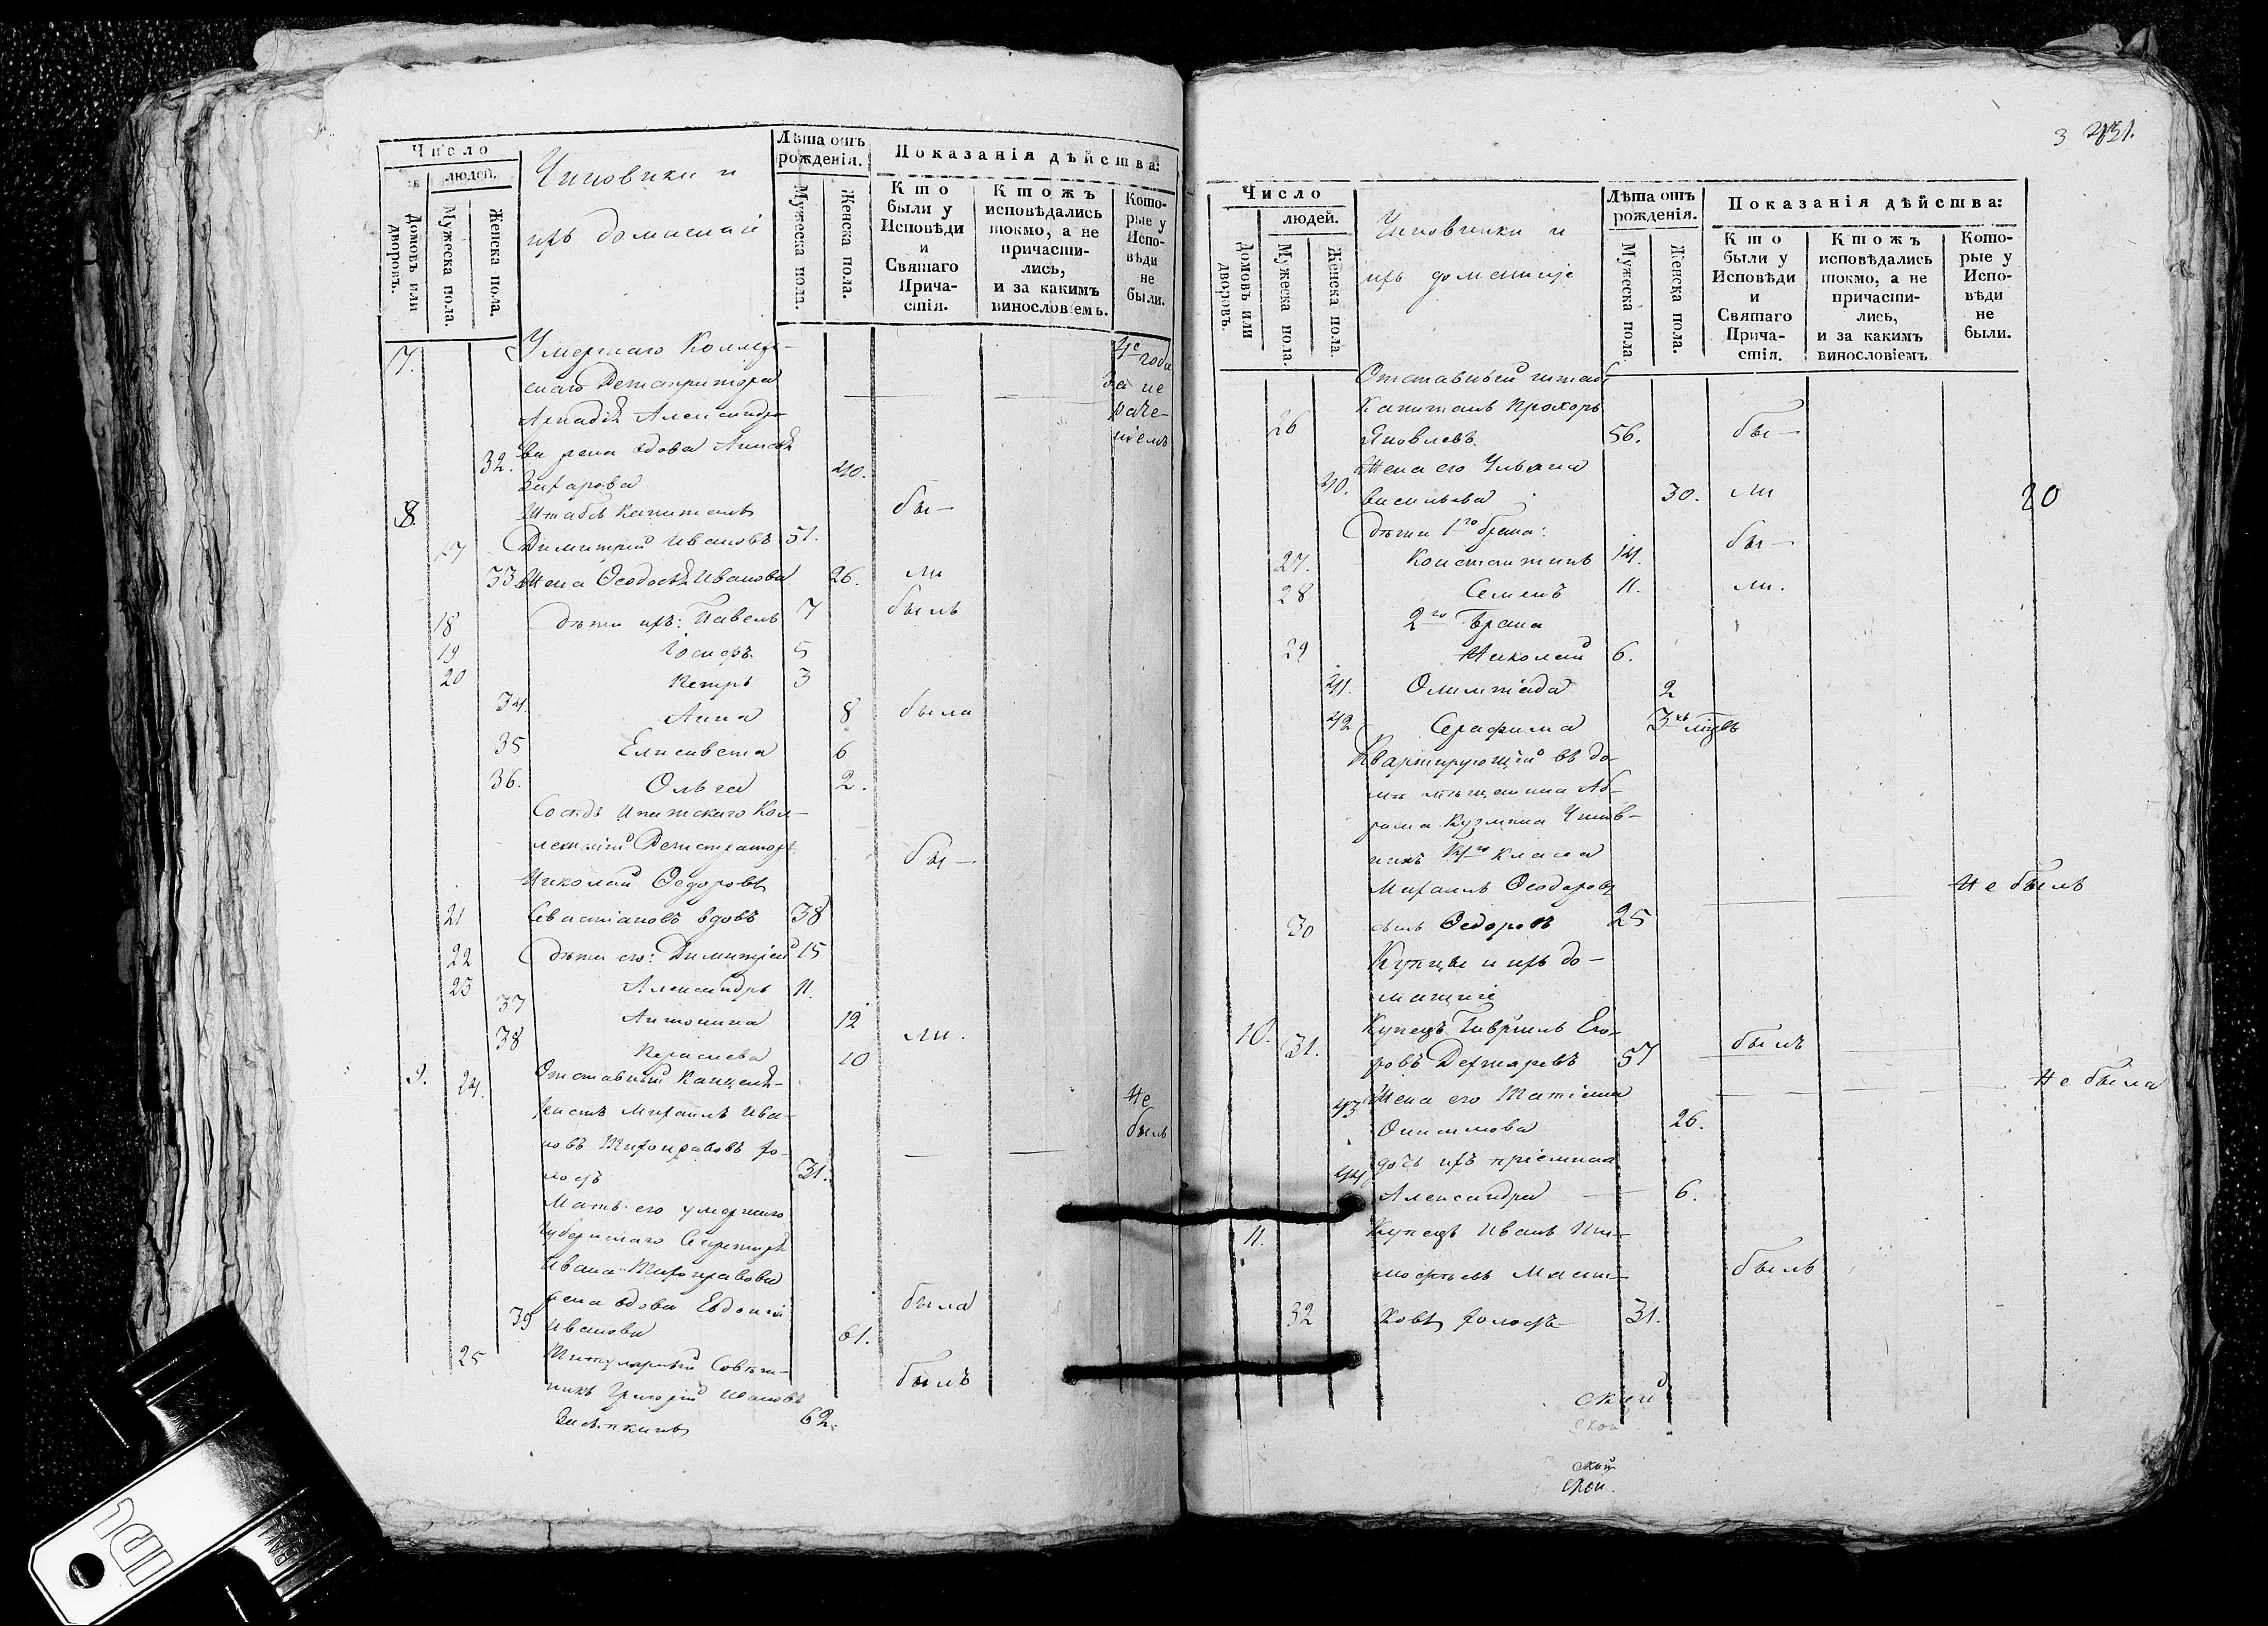 Число
людей.
Домовъ или дворовъ.
Мужеска пола.
Женска пола.
Чиновники и
ихъ домашніе
Лѣта отъ рожденія.
Мужеска пола.
Женска пола.
Показанія дѣйства:
Кто были у Исповѣди и Святаго Причастія.
Ктожъ исповѣдались токмо, а не причастились, и за какимъ винословіемъ.
Которые у Исповѣди не были.
7. Умершаго Коллеж-
скаго Регистратора
Аркадія Александро-
32. ва жена вдова Анисія 40.
Захарова
4е года
за не
раче-
ніемъ
8. Штабсъ Капитанъ бы-
17 Димитрій Ивановъ 51.
33 Жена Ѳеодосія Иванова 26. ли
18 дѣти ихъ: Павелъ 7 былъ
19 Іосифъ 5
20 Петръ 3
34. Анна 8 была
35 Елисавета 6
36. Ольга 2.
Кол-
лежскій Регистраторъ бы-
Николай Ѳедоровъ
21 Севастіановъ вдовъ 38
22 дѣти его: Димитрій 15
23 Александръ 11.
37 Антонина 12
38 10 ли.
9. 24. Отставный Канцеля-
ристъ Михаилъ Ива- Не
новъ Тихонравовъ хо- былъ
лостъ 31.
Мать его умершаго
Губернскаго Секретаря
Ивана Тихонравова
жена вдова Евдокія была
39 Иванова 61.
25 Титулярный Совѣт- былъ
никъ Григорій Ивановъ
62.
3 231.
Число
людей.
Домовъ или дворовъ.
Мужеска пола.
Женска пола.
Чиновники и
ихъ домашніе
Лѣта отъ рожденія.
Мужеска пола.
Женска пола.
Показанія дѣйства:
Кто были у Исповѣди и Святаго Причастія.
Ктожъ исповѣдались токмо, а не причастились, и за какимъ винословіемъ.
Которые у Исповѣди не были.
Отставный штабсъ
Капитанъ Прохоръ
26 Яковлевъ 56. бы-
Жена его Ульяна
40. Васильева 30. ли 20
дѣти 1го брака:
27. Константинъ 14. бы-
28 Семенъ 11. ли.
2го брака
29 Николай 6.
41. Олимпіада 2
42 Серафима 3хъ мцвъ
Квартирующій въ до-
мѣ мѣщанина Аб-
рама Кузмина Чинов-
никъ 14го класса
Михаилъ Ѳеодоровъ Не былъ
30 сынъ Ѳедоровъ 25
Купцы и ихъ до-
машніе
10. Купецъ Гавріилъ Его-
31. ровъ Дегтяревъ 57 былъ
43 Жена его Татіана Не была
26.
дочь ихъ пріемная
44 Александра 6.
11. Купецъ Иванъ Ти-
мофѣевъ былъ
32 ковъ холостъ 31.
ской
ской
ской
ской.